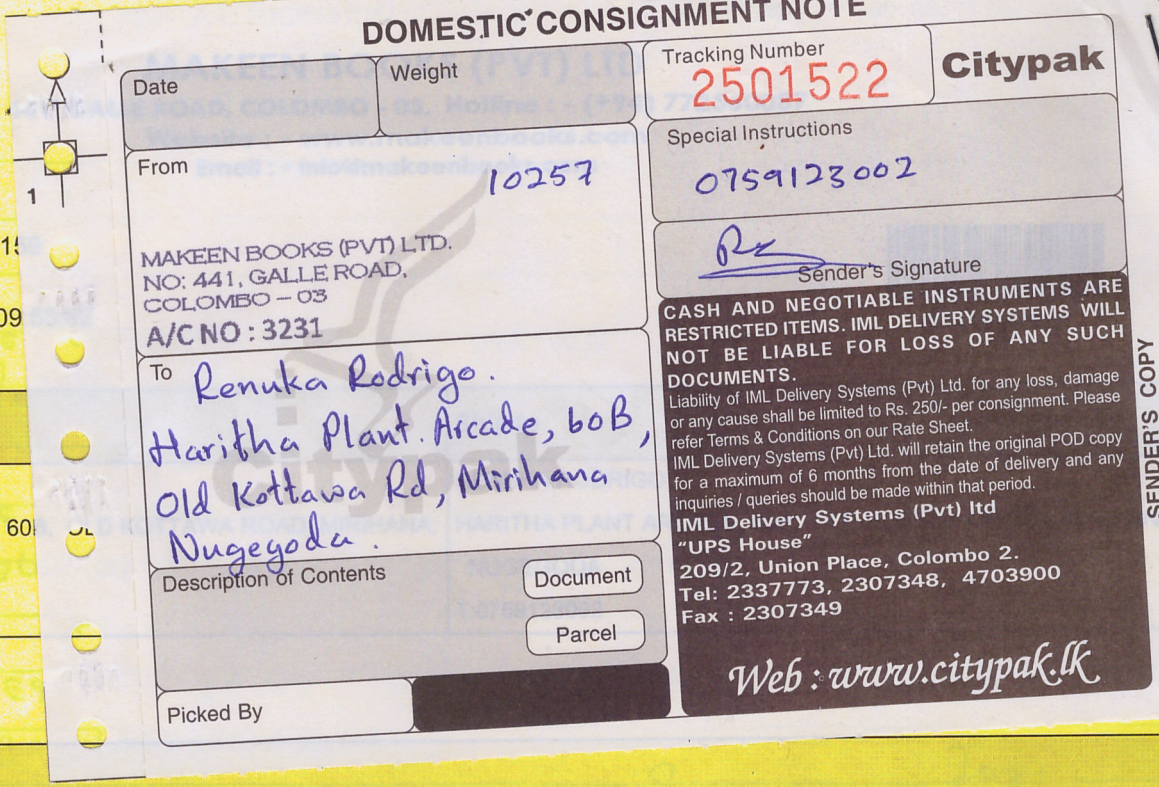 DOMESTIC CONSIGNMENT NOTE
Date
Weight
Tracking Number
2501522
Citypak
From
10257
MAKEEN BOOKS (PVT) LTD.
NO: 441, GALLE ROAD,
COLOMBO – 03
A/C NO : 3231
Special Instructions
0759123002
Sender's Signature
To
Renuka Rodrigo.
Haritha Plant. Arcade, 60B,
Old Kottawa Rd, Mirihana
Nugegoda.
Citypak
Description of Contents
Document
Parcel
Picked By
CASH AND NEGOTIABLE INSTRUMENTS ARE
RESTRICTED ITEMS. IML DELIVERY SYSTEMS WILL
NOT BE LIABLE FOR LOSS OF ANY SUCH
DOCUMENTS.
Liability of IML Delivery Systems (Pvt) Ltd. for any loss, damage
or any cause shall be limited to Rs. 250/- per consignment. Please
refer Terms & Conditions on our Rate Sheet.
IML Delivery Systems (Pvt) Ltd. will retain the original POD copy
for a maximum of 6 months from the date of delivery and any
inquiries / queries should be made within that period.
IML Delivery Systems (Pvt) ltd
"UPS House"
209/2, Union Place, Colombo 2.
Tel: 2337773, 2307348, 4703900
Fax : 2307349
Web : www.citypak.lk
SENDER'S COPY
1
09
60